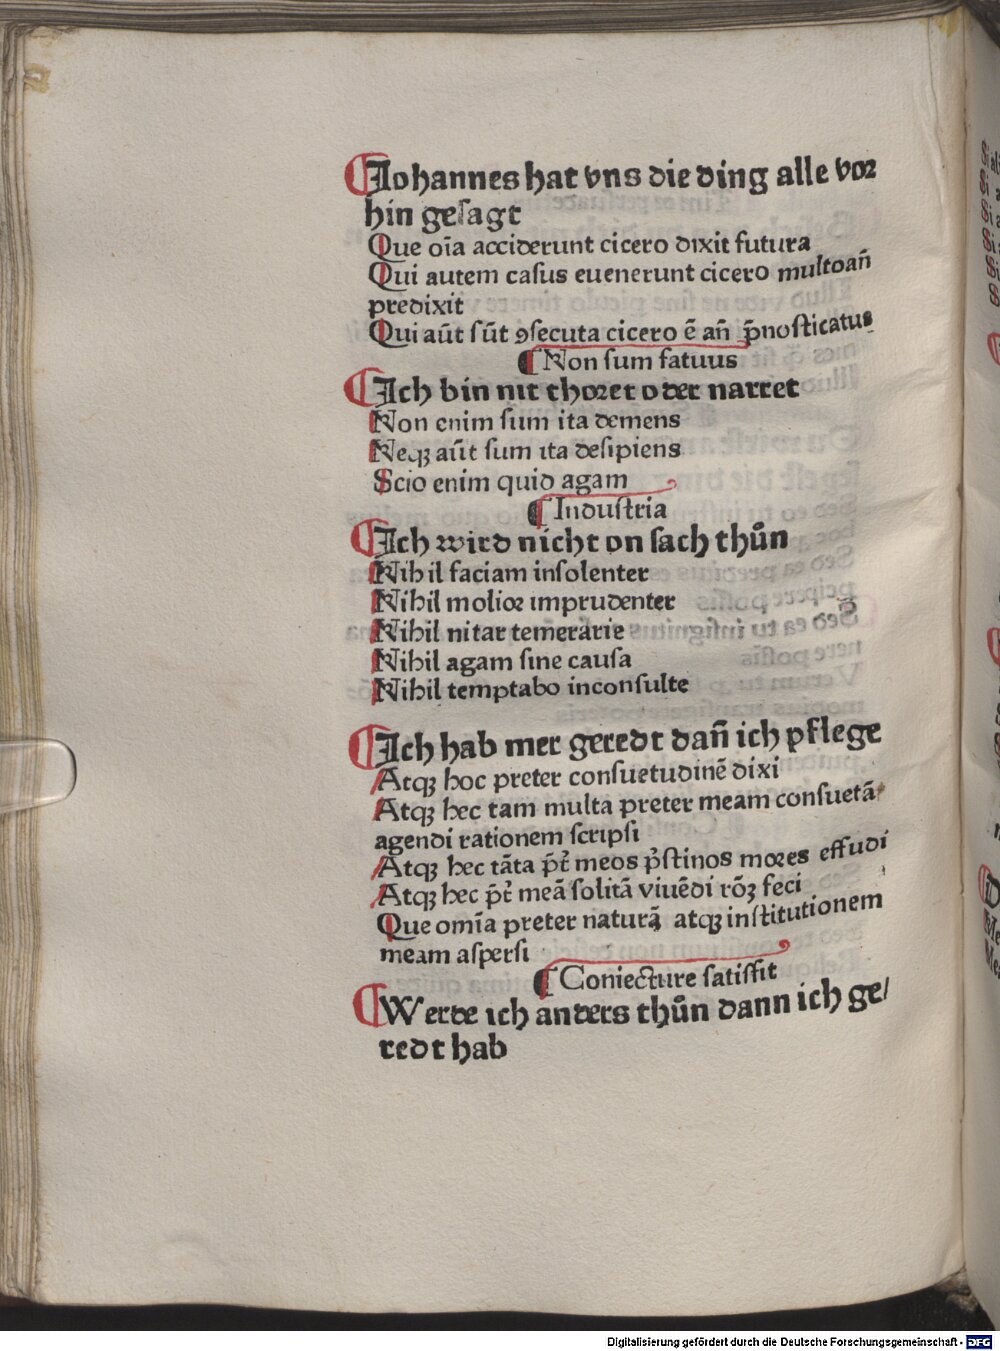 ¶Johannes hat vns die ding alle vor
hin gesagt
Que oı̃a acciderunt cicero dixit futura
Qui autem casus euenerunt cicero multoañ
predixit
Qui aũt sũt ꝯsecuta cicero ẽ añ p̃nosticatus
¶ Non sum fatuus
¶Ich bin nit thoret oder narret
Non enim sum ita demens
Neqꝫ aũt sum ita desipiens
Scio enim quid agam
¶ Industria
¶Ich wird nicht on sach thůn
Nihil faciam insolenter
Nihil molior imprudenter
Nihil nitar temerarie
Nihil agam sine causa
Nihil temptabo inconsulte
¶Ich hab mer geredt dañ ich pflege
Atqꝫ hoc preter consuetudinẽ dixi
Atqꝫ hec tam multa preter meam consuetã
agendi rationem scripsi
Atqꝫ hec tãta p̃t̃ meos p̃stinos mores effudi
Atqꝫ hec p̃t̃ meã solitã viuẽdi rõꝫ feci
Que omı̃a preter naturã atqꝫ institutionem
meam aspersi
¶ Coniecture satisfit
¶Werde ich anders thůn dann ich ge/
redt hab
Digitalisierung gefördert durch die Deutsche Forschungsgemeinschaft - DFG